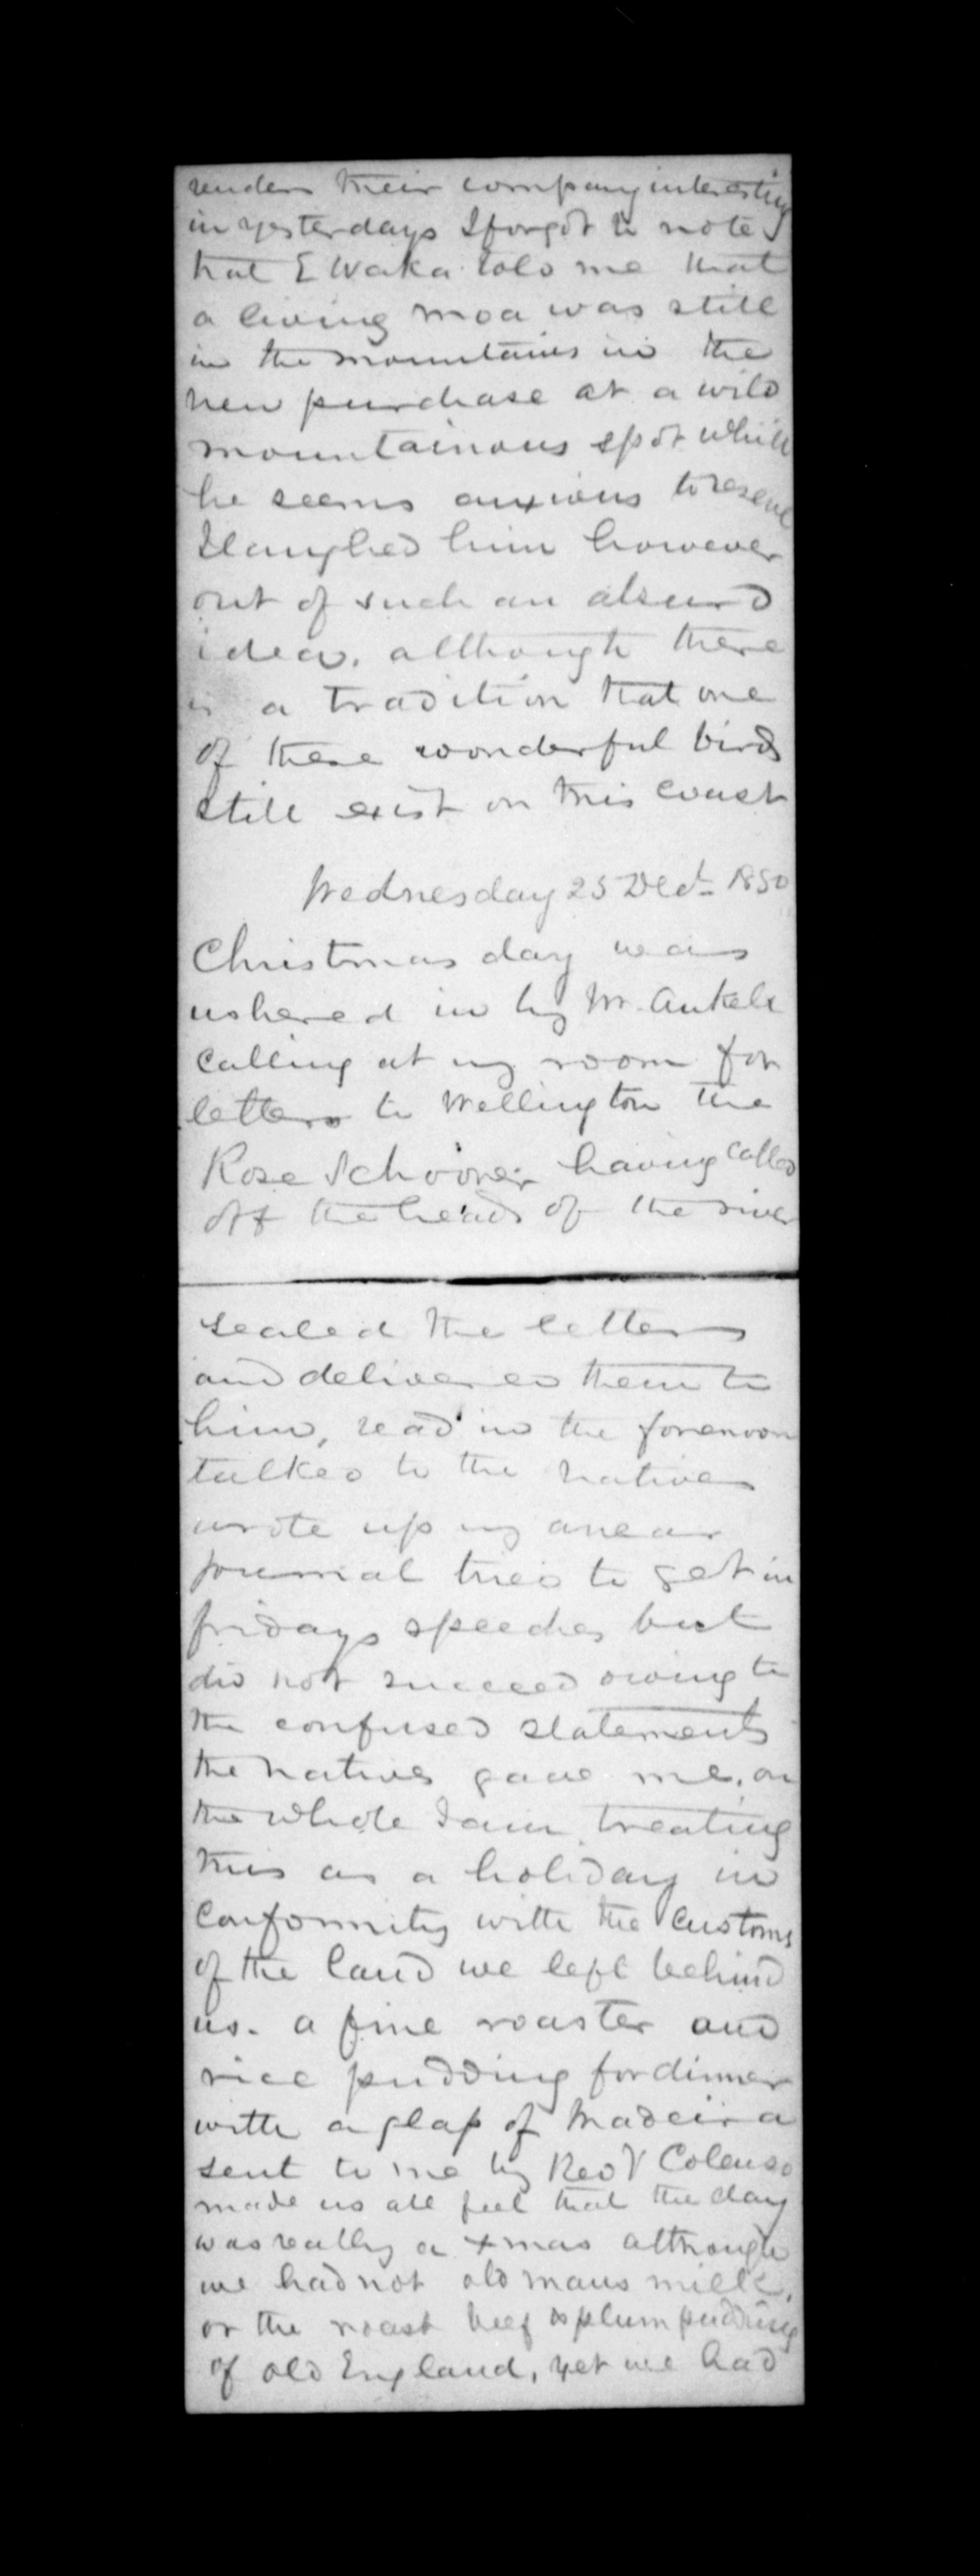 render their company interesting
in yesterdays I forgot to note
that E Waka told me that
a living moa was still
in the mountains in the
new purchase at a wild
mountainous spot which
he seems anxious to reserve
I laughed him however
out of such an absurd
idea, although there
is a tradition that one
of these wonderful birds
still exist on this coast
Wednesday 25 Decr 1850
Christmas day was
ushered in by Mr.
calling at my room for
letters to Wellington the
Rose Schooner having called
off the heads of the river
sealed the letters
and delivered them to
him, read in the forenoon
talked to the natives
wrote up my
journal tried to get in
fridays speeches but
did not succeed owing to
the confused statements
the natives gave me, on
the whole I am treating
this as a holiday in
conformity with the customs
of the land we left behind
us. a fine roaster and
rice pudding for dinner
with a glass of Madeira
sent to me by Revd Colenso
made us all feel that the day
was really a xmas although
we had not old mans milk,
or the roast beef & plum pudding
of old England, yet we had